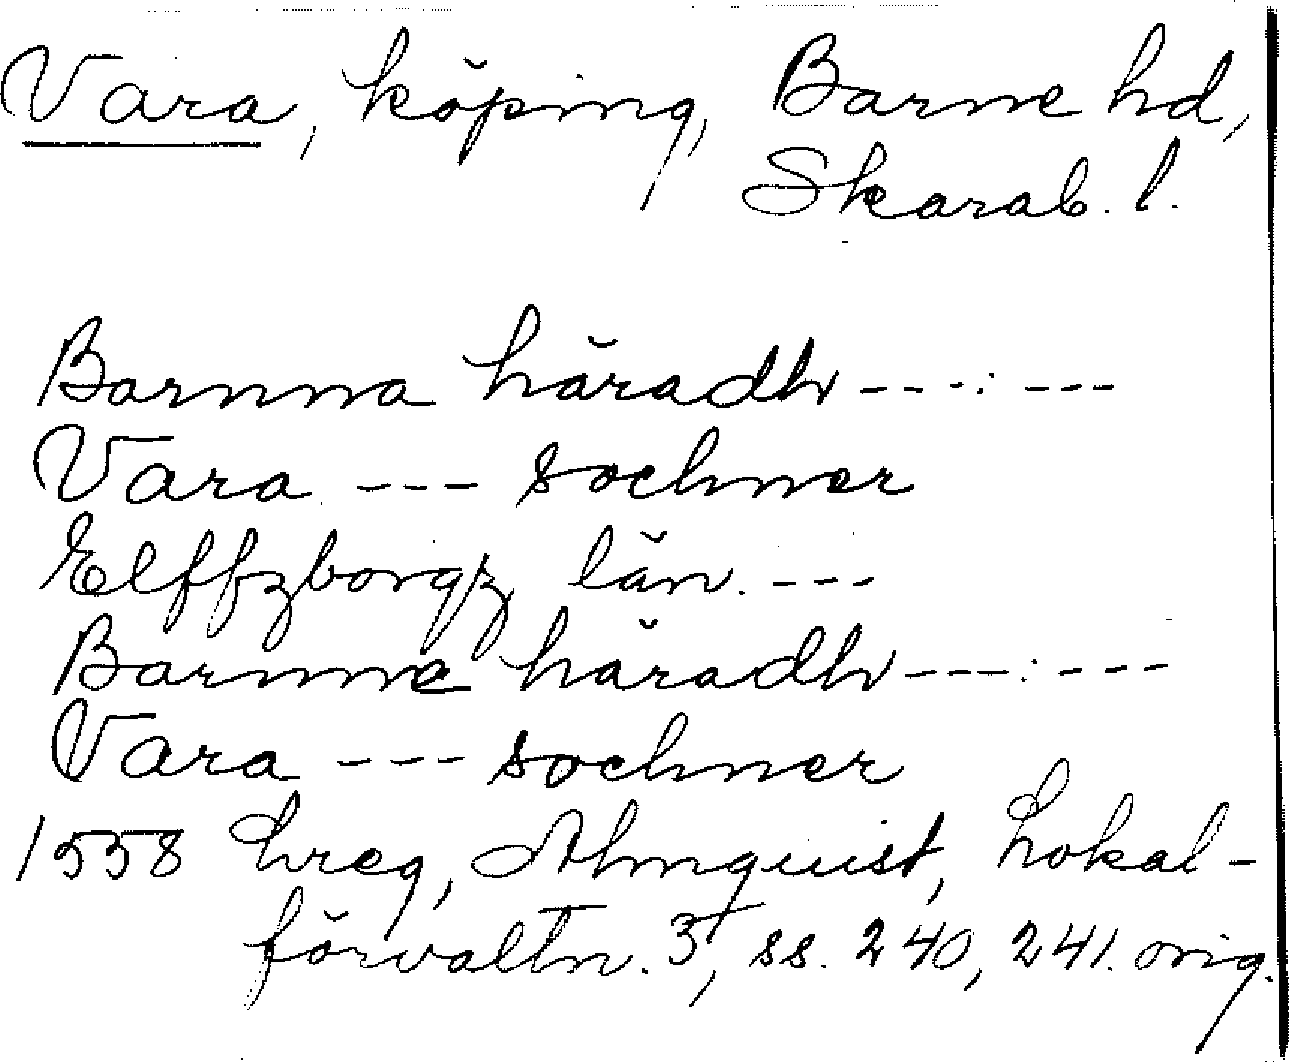 Vara, köping, Barne hd,
Skarab. l.
Barnna häradh ---:---
Vara --- sochner
Elffzborgz län. ---
Barnna häradh ---:---
Vara --- sochner
1558 Lreg, Almquist, Lokal-
förvaltn. 3, ss. 240, 241. orig.